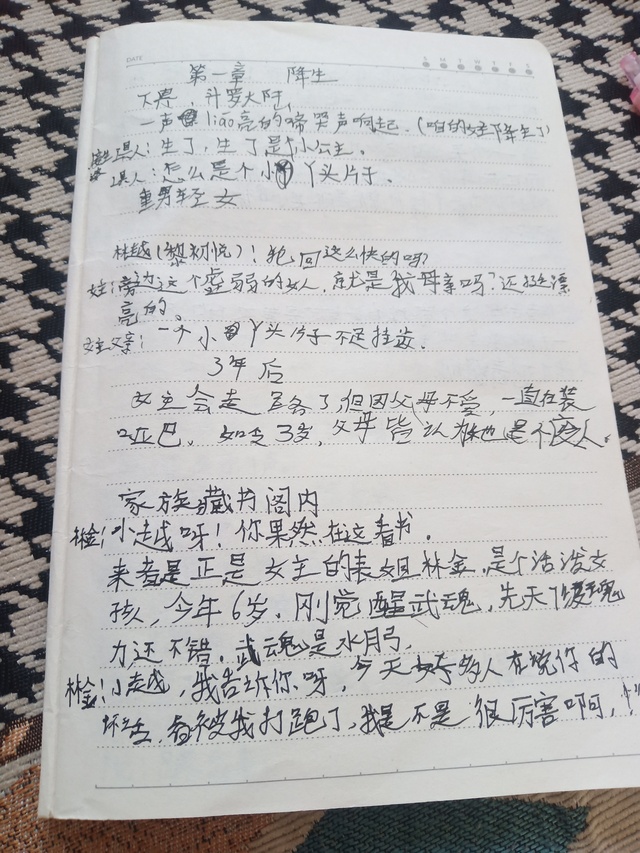 DATE
S M T W T F S
第一章 降生
下界,斗罗大陆
一声liāo亮的啼哭声响起.(咱的女主降生了)
工具人:生了,生了是个小公主.
工具人:怎么是个小丫头片子.
重男轻女
林越(黎初悦):轮回这么快的吗?
旁边这个虚弱的女人,就是我母亲吗?还挺漂
亮的.
女主父亲:一个小丫头片子不足挂齿.
3年后
女主会走路了,但因父母不爱,一直在装
哑巴.如今3岁,父母皆认为她是个废人.
家族藏书阁内
林金:小越呀!你果然在这看书.
来者是正是女主的表姐林金,是个活泼女
孩,今年6岁.刚觉醒武魂,先天魂
力还不错.武魂是水月弓,
林金:小越,我告诉你呀,今天好多人在说你的
坏话,都被我打跑了,我是不是很厉害啊,